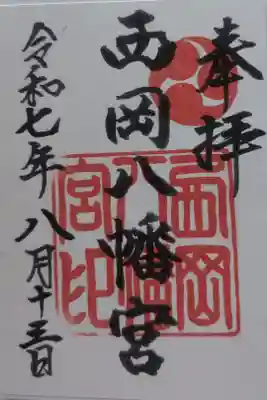 奉拝
西岡八幡宮
西岡八幡宮印
令和七年八月十五日